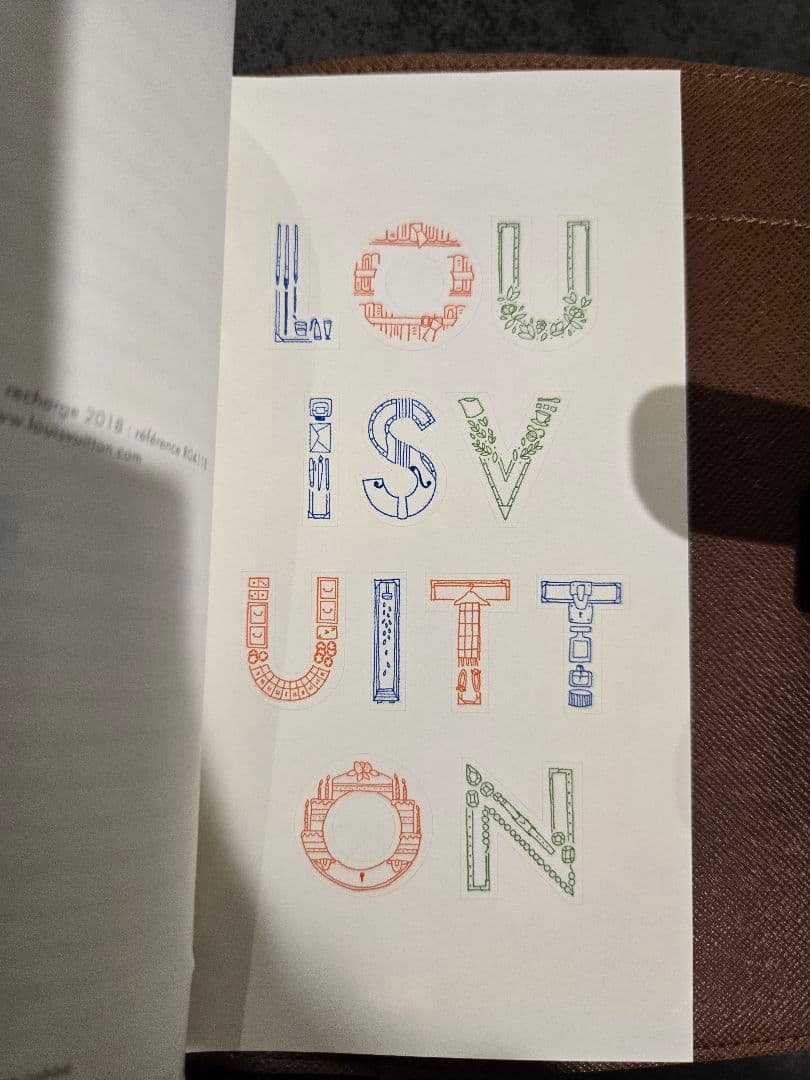 recharge 2018 : référence R04110
www.louisvuitton.com
LOU
ISV
UITT
ON